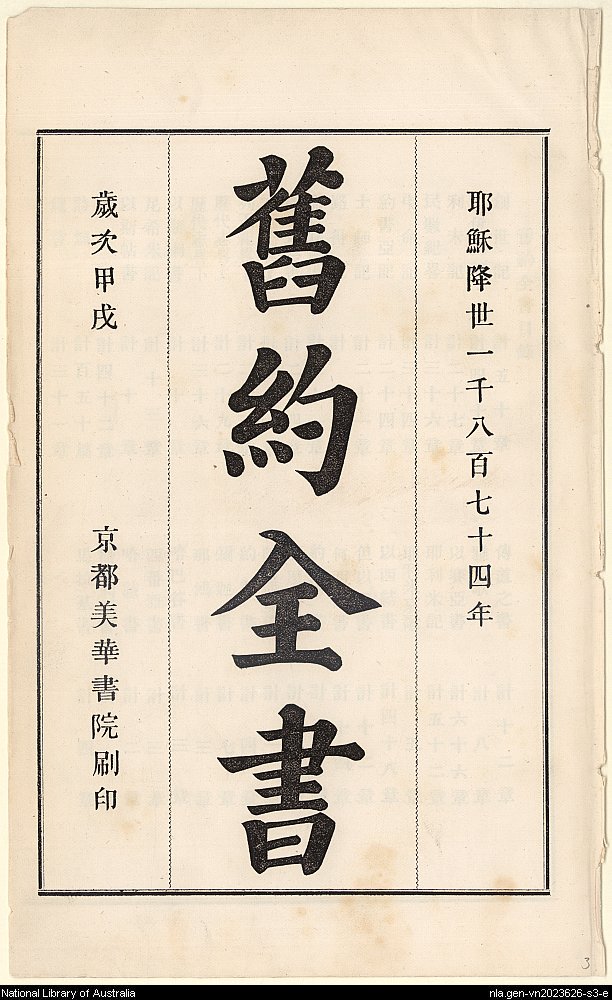 耶穌降世一千八百七十四年
舊約全書
歲次甲戌 京都美華書院刷印
3
National Library of Australia
nla.gen-vn2023626-s3-e